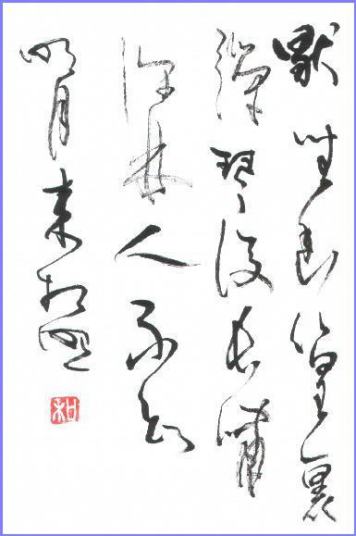 獨坐幽篁裏
彈琴復長嘯
深林人不知
明月来相照
和